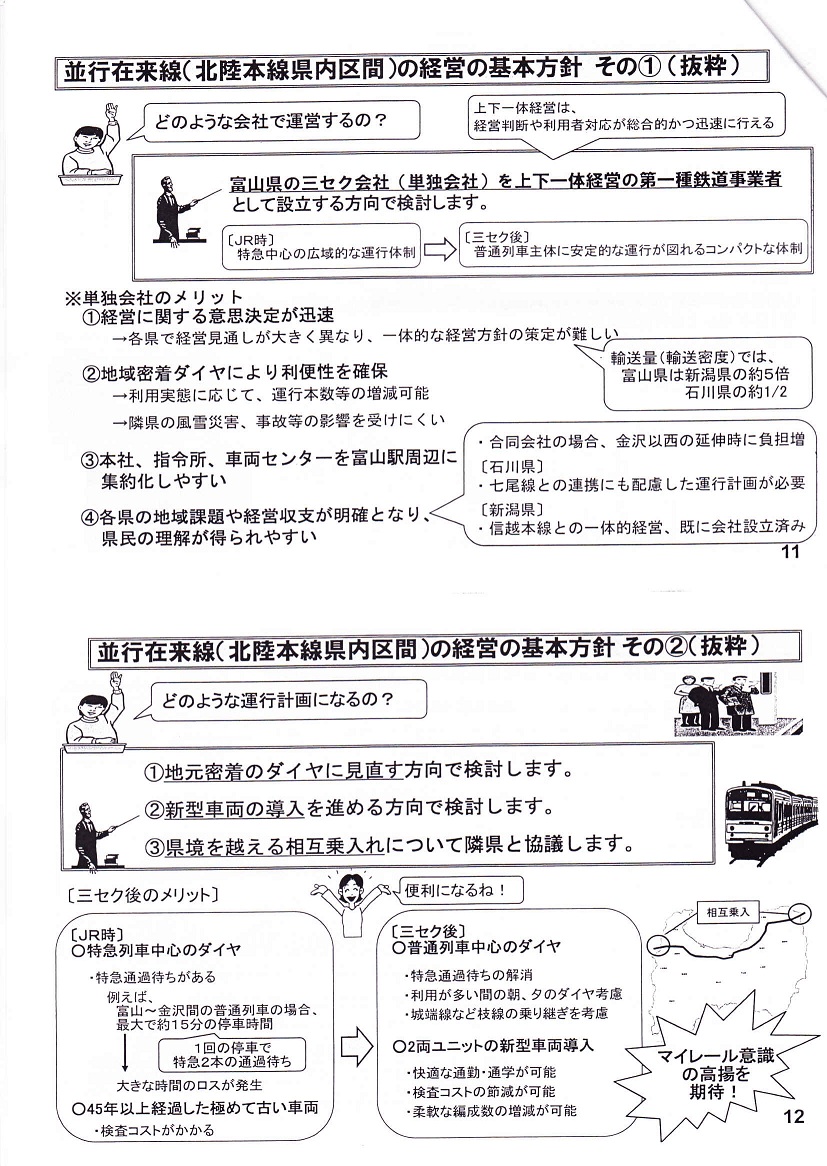 並行在来線(北陸本線県内区間)の経営の基本方針 その①(抜粋)
どのような会社で運営するの？
上下一体経営は、
経営判断や利用者対応が総合的かつ迅速に行える
富山県の三セク会社(単独会社)を上下一体経営の第一種鉄道事業者
として設立する方向で検討します。
〔JR時〕
特急中心の広域的な運行体制
〔三セク後〕
普通列車主体に安定的な運行が図れるコンパクトな体制
※単独会社のメリット
①経営に関する意思決定が迅速
→各県で経営見通しが大きく異なり、一体的な経営方針の策定が難しい
輸送量(輸送密度)では、
富山県は新潟県の約5倍
石川県の約1/2
②地域密着ダイヤにより利便性を確保
→利用実態に応じて、運行本数等の増減可能
→隣県の風雪災害、事故等の影響を受けにくい
③本社、指令所、車両センターを富山駅周辺に
集約化しやすい
④各県の地域課題や経営収支が明確となり、
県民の理解が得られやすい
・合同会社の場合、金沢以西の延伸時に負担増
〔石川県〕
・七尾線との連携にも配慮した運行計画が必要
〔新潟県〕
・信越本線との一体的経営、既に会社設立済み
11
並行在来線(北陸本線県内区間)の経営の基本方針 その②(抜粋)
どのような運行計画になるの？
①地元密着のダイヤに見直す方向で検討します。
②新型車両の導入を進める方向で検討します。
③県境を越える相互乗入れについて隣県と協議します。
〔三セク後のメリット〕
便利になるね！
〔JR時〕
○特急列車中心のダイヤ
・特急通過待ちがある
例えば、
富山～金沢間の普通列車の場合、
最大で約15分の停車時間
1回の停車で
特急2本の通過待ち
大きな時間のロスが発生
○45年以上経過した極めて古い車両
・検査コストがかかる
〔三セク後〕
○普通列車中心のダイヤ
・特急通過待ちの解消
・利用が多い間の朝、夕のダイヤ考慮
・城端線など枝線の乗り継ぎを考慮
○2両ユニットの新型車両導入
・快適な通勤・通学が可能
・検査コストの節減が可能
・柔軟な編成数の増減が可能
相互乗入
マイレール意識
の高揚を
期待！
12